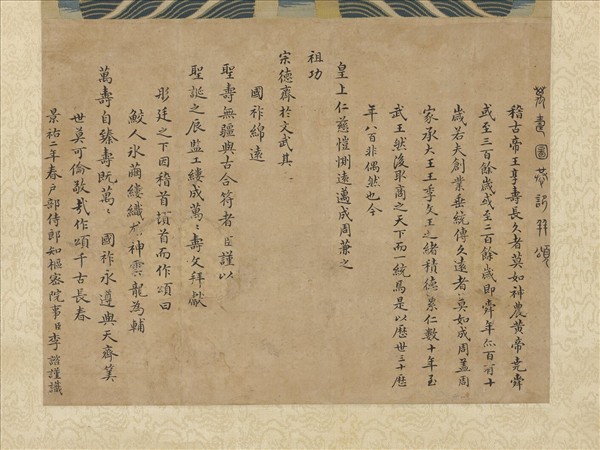 萬壽圖恭記并頌
稽古帝王享壽長久者莫如神農黃帝堯舜
或至三百餘歲或至二百餘歲即舜年亦百有十
歲若夫創業垂統傳久遠者莫如成周蓋周
家承大王王季文王之緒積德累仁數十年至
武王然後取商之天下而一統焉是以歷世三十歷
年八百非偶然也今
皇上仁慈愷惻遠邁成周兼之
祖功
宗德齋於文武其
國祚綿遠
聖壽無疆與古合符者臣謹以
聖誕之辰監工縷成萬萬壽文拜獻
彤廷之下因稽首頓首而作頌曰
鮫人冰繭縷纖尤神雲龍為輔
萬壽自臻壽既萬萬國祚永遵與天齊筭
世莫可倫敬哉作頌千古長春
景祐二年春戶部侍郎知樞密院事臣李諮謹識